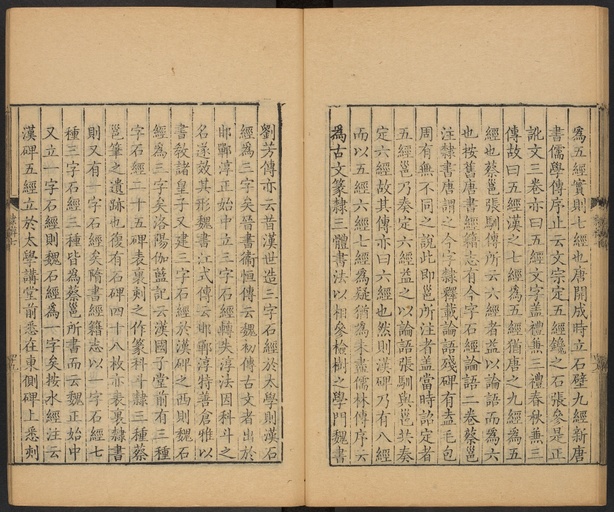 為五經實則七經也唐開成時立石壁九經新唐
書儒學傳序止云文宗定五經鑱之石張參是正
訛文三卷亦曰五經文字蓋禮兼三禮春秋兼三
傳故曰五經漢之七經為五經猶唐之九經為五
經也蔡邕張馴傳所云六經者益以論語而為六
也按舊唐書經籍志有今字石經論語二卷蔡邕
注隸書唐謂之今字隸釋載論語殘碑有盍毛包
周有無不同之說此即邕所注者蓋當時詔定者
五經邕乃奏定六經益之以論語張馴與邕共奏
定六經故其傳亦曰六經也然則漢碑乃有八經
而以五經六經七經為疑猶為未盡儒林傳序云
為古文篆隸三體書法以相參檢樹之學門魏書
劉芳傳亦云昔漢世造三字石經於太學則漢石
經為三字矣晉書衛恒傳云魏初傳古文者出於
邯鄲淳正始中立三字石經轉失淳法因科斗之
名遂效其形魏書江式傳云邯鄲淳特善倉雅以
書教諸皇子又建三字石經於漢碑之西則魏石
經為三字矣洛陽伽藍記云漢國子堂前有三種
字石經二十五碑表裏刻之作篆科斗隸三種蔡
邕筆之遺跡也復有石碑四十八枚亦表裏隸書
則又有一字石經矣隋書經籍志以一字石經七
種三字石經三種皆為蔡邕所書而云魏正始中
又立一字石經則魏石經為一字矣按水經注云
漢碑五經立於太學講堂前悉在東側碑上悉刻